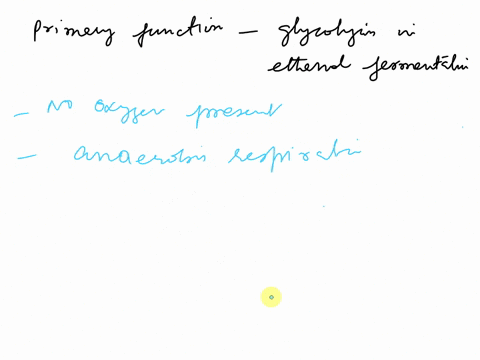 Primary function - glycolysis in
ethanol fermentation
- No oxygen present
- anaerobic respiration